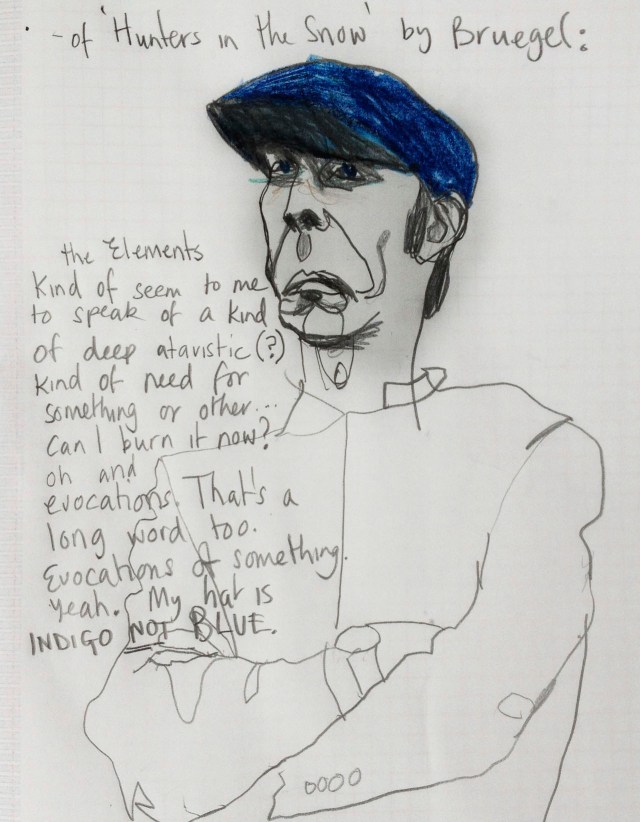 - of 'Hunters in the Snow' by Bruegel:
the Elements
Kind of seem to me
to speak of a kind
of deep atavistic (?)
kind of need for
something or other...
can I burn it now?
oh and
evocations. That's a
long word too.
Evocations of something.
yeah. My hat is
INDIGO NOT BLUE.